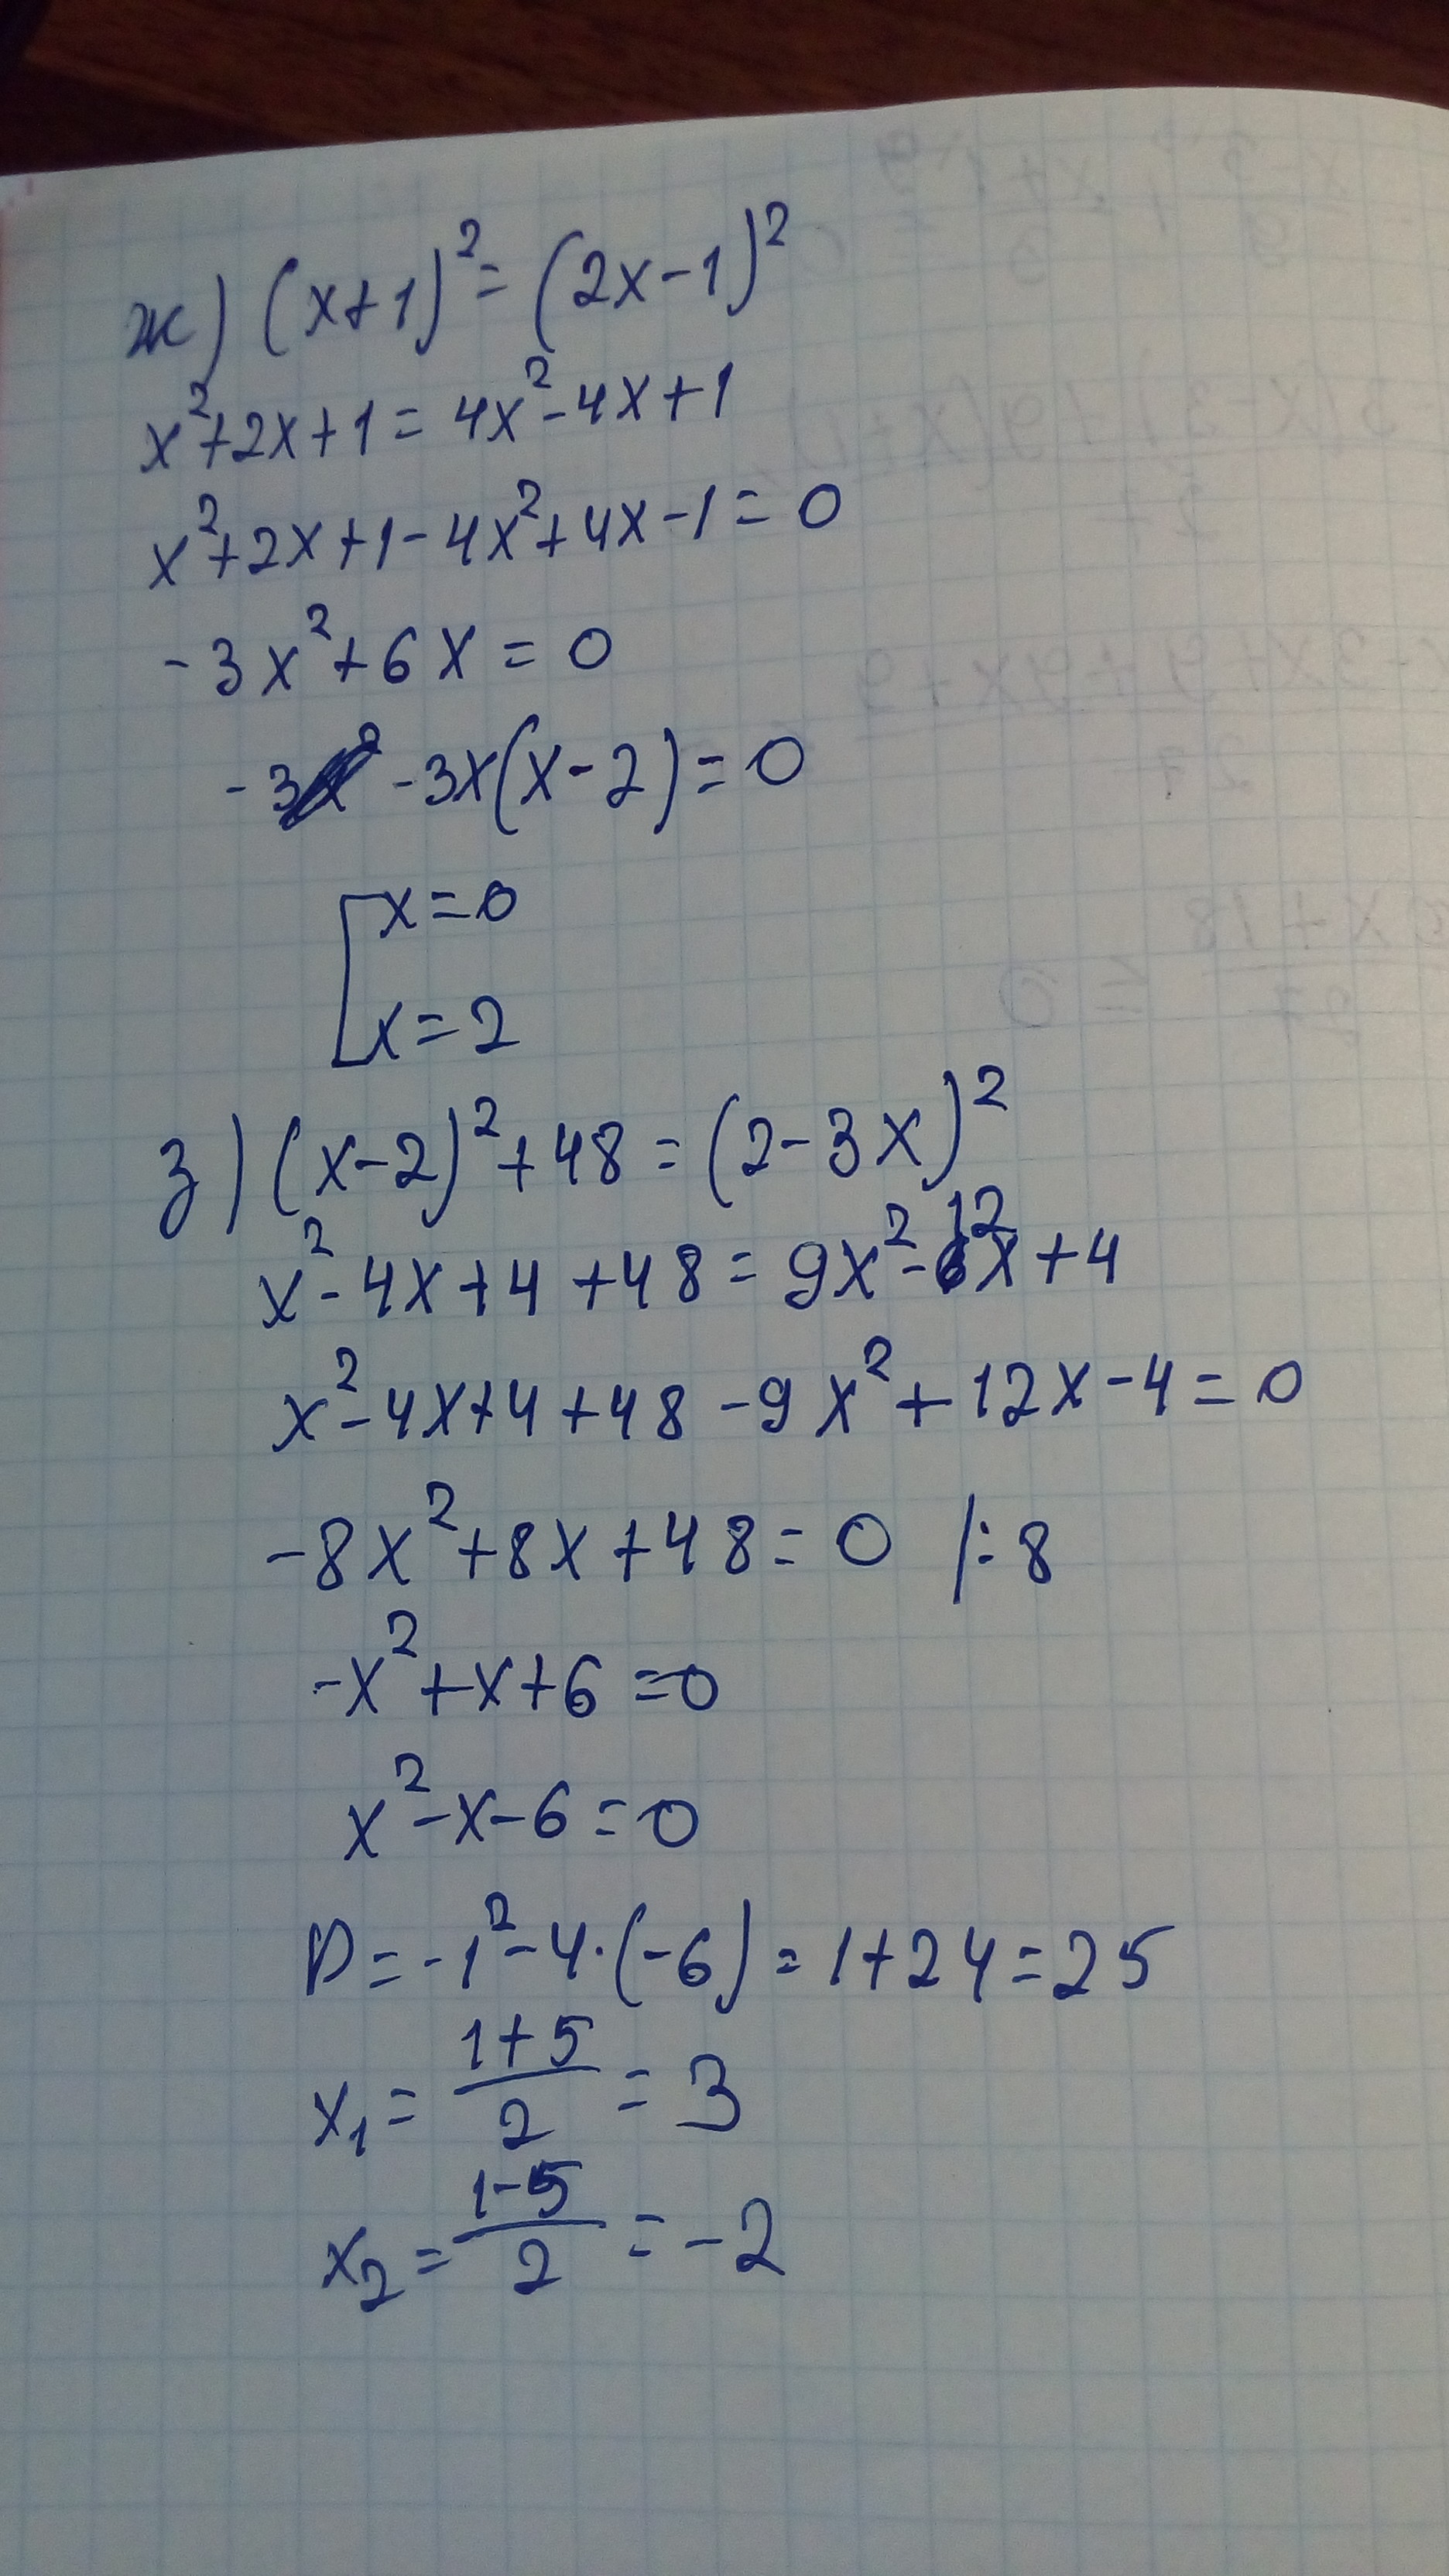 ж) (x+1)² = (2x-1)²
x²+2x+1 = 4x²-4x+1
x²+2x+1-4x²+4x-1=0
-3x²+6x=0
-3x(x-2)=0
x=0
x=2
з) (x-2)²+48=(2-3x)²
x²-4x+4+48=9x²-12x+4
x²-4x+4+48-9x²+12x-4=0
-8x²+8x+48=0 /:8
-x²+x+6=0
x²-x-6=0
D=-1²-4·(-6)=1+24=25
x₁=(1+5)/2=3
x₂=(1-5)/2=-2